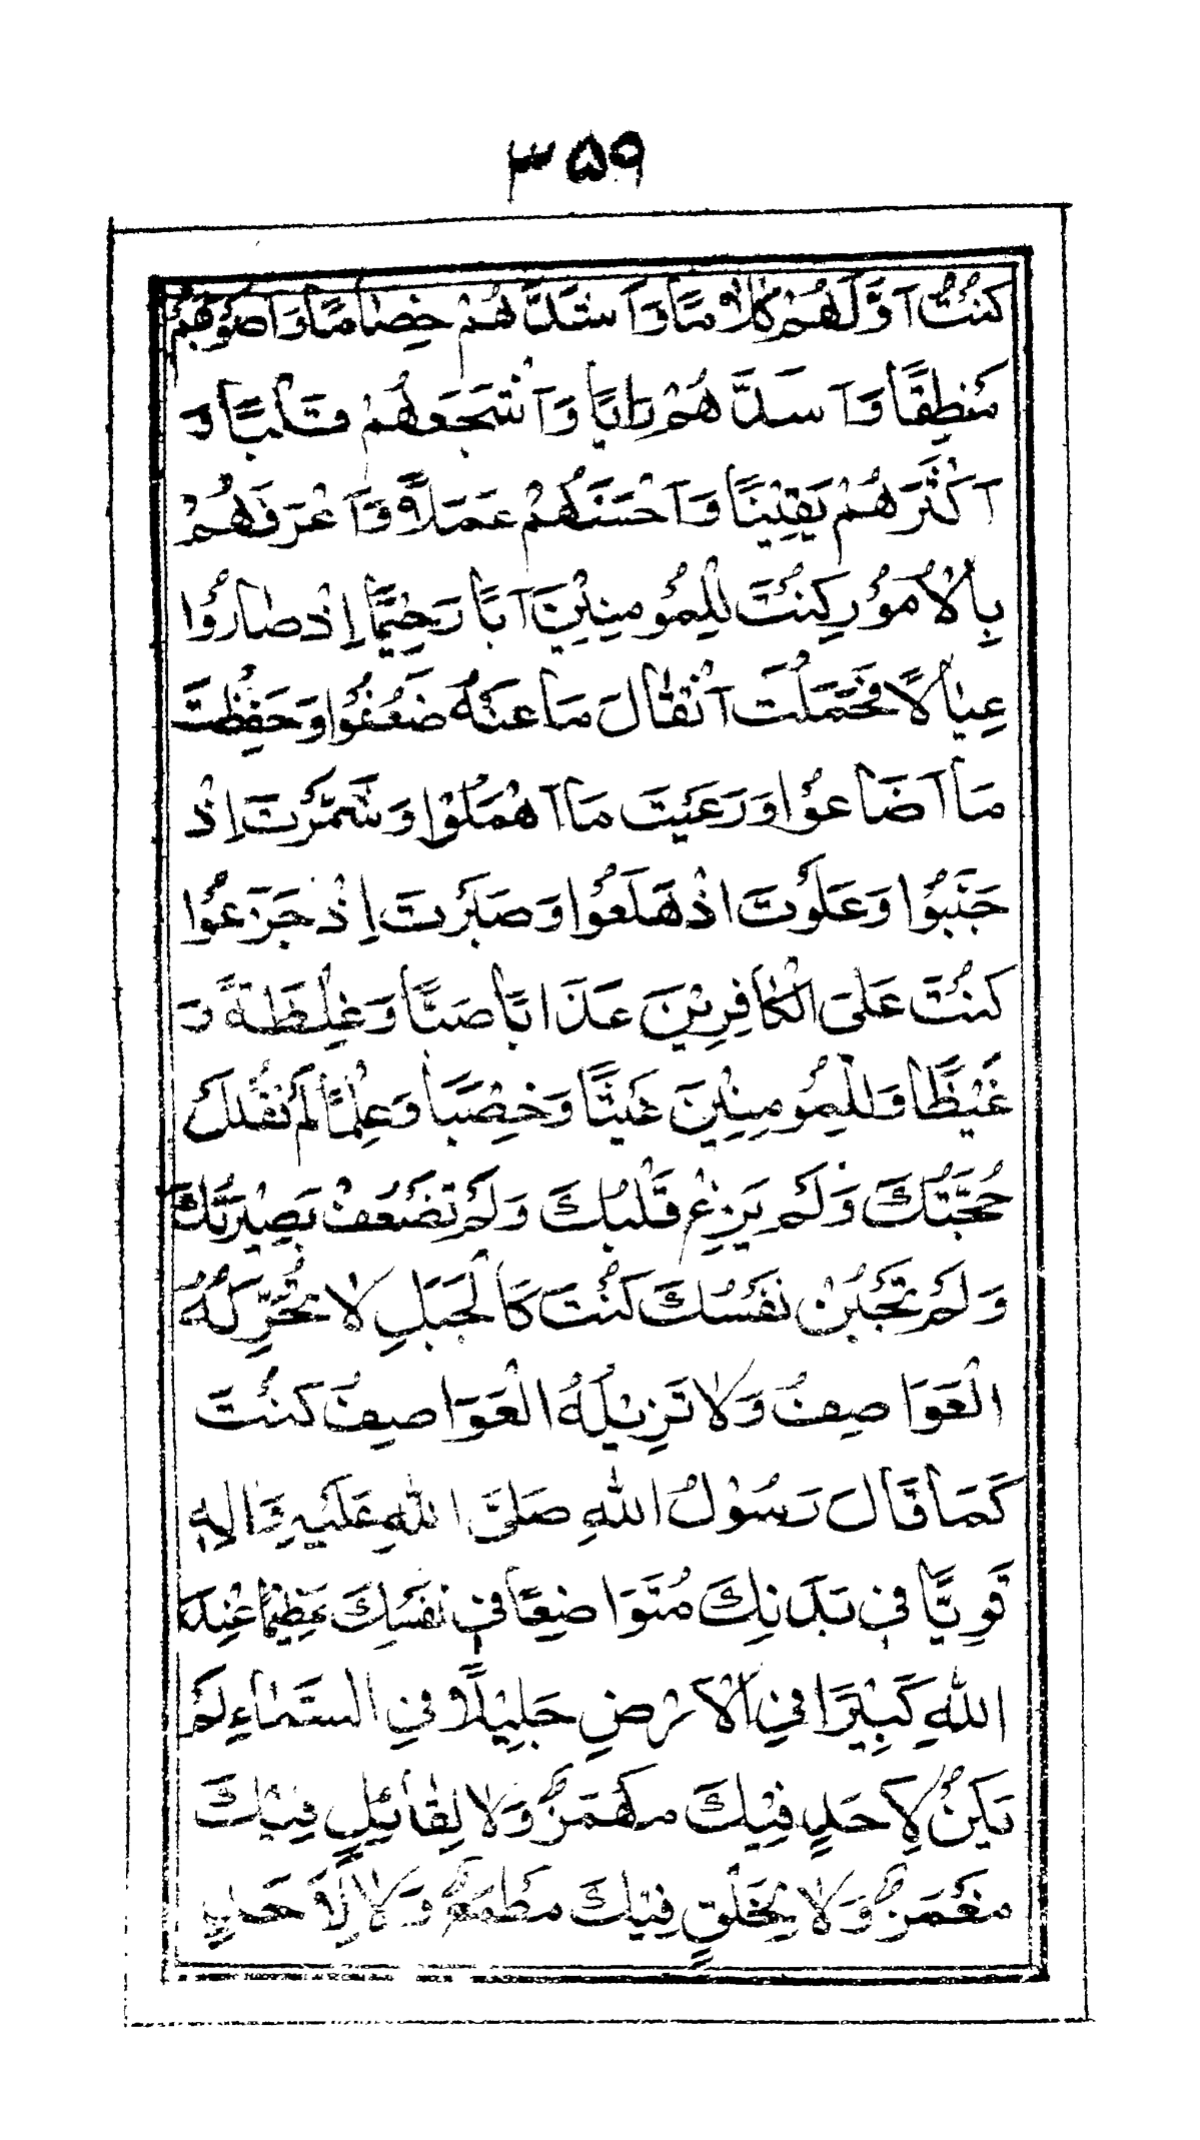 ۳۵۹
كُنْتُ اَوَّلَهُمْ كَلَامًا وَاَشَدَّهُمْ خِصَامًا وَاَصْوَبَهُمْ
مَنْطِقًا وَاَسَدَّهُمْ رَايًا وَاَشْجَعَهُمْ قَلْبًا وَ
اَكْثَرَهُمْ يَقِيْنًا وَاَحْسَنَهُمْ عَمَلًا وَاَعْرَفَهُمْ
بِالْاُمُوْرِ كُنْتَ لِلْمُوْمِنِيْنَ اَبًا رَحِيْمًا اِذْ صَارُوْا
عِيَالًا فَحَمَلْتَ اَثْقَالَ مَا عَنْهُ ضَعُفُوْا وَحَفِظْتَ
مَا اَضَاعُوْا وَرَعَيْتَ مَا اَهْمَلُوْا وَشَمَّرْتَ اِذْ
جَنَبُوْا وَعَلَوْتَ اِذْ هَلَعُوْا وَصَبَرْتَ اِذْ جَزَعُوْا
كُنْتَ عَلَى الْكَافِرِيْنَ عَذَابًا صَبًّا وَغِلْظَةً وَ
غَيْظًا وَلِلْمُوْمِنِيْنَ غَيْثًا وَخِصْبًا وَعِلْمًا لَمْ تَفْلُلْ
حُجَّتُكَ وَلَمْ يَزِغْ قَلْبُكَ وَلَمْ تَضْعُفْ بَصِيْرَتُكَ
وَلَمْ تَجْبُنْ نَفْسُكَ كُنْتَ كَالْجَبَلِ لَا تُحَرِّكُهُ
الْعَوَاصِفُ وَلَا تَزِيْلُهُ الْعَوَاصِفُ كُنْتَ
كَمَا قَالَ رَسُوْلُ اللهِ صَلَّى اللهُ عَلَيْهِ وَاٰلِهٖ
قَوِيًّا فِي بَدَنِكَ مُتَوَاضِعًا فِي نَفْسِكَ عَظِيْمًا عِنْدَ
اللهِ كَبِيْرًا فِي الْاَرْضِ جَلِيْلًا فِي السَّمَاءِ لَمْ
يَكُنْ لِاَحَدٍ فِيْكَ مَهْمَزٌ وَلَا لِقَائِلٍ فِيْكَ
مَغْمَزٌ وَلَا لِخَلْقٍ فِيْكَ مَطْمَعٌ وَلَا لِاَحَدٍ